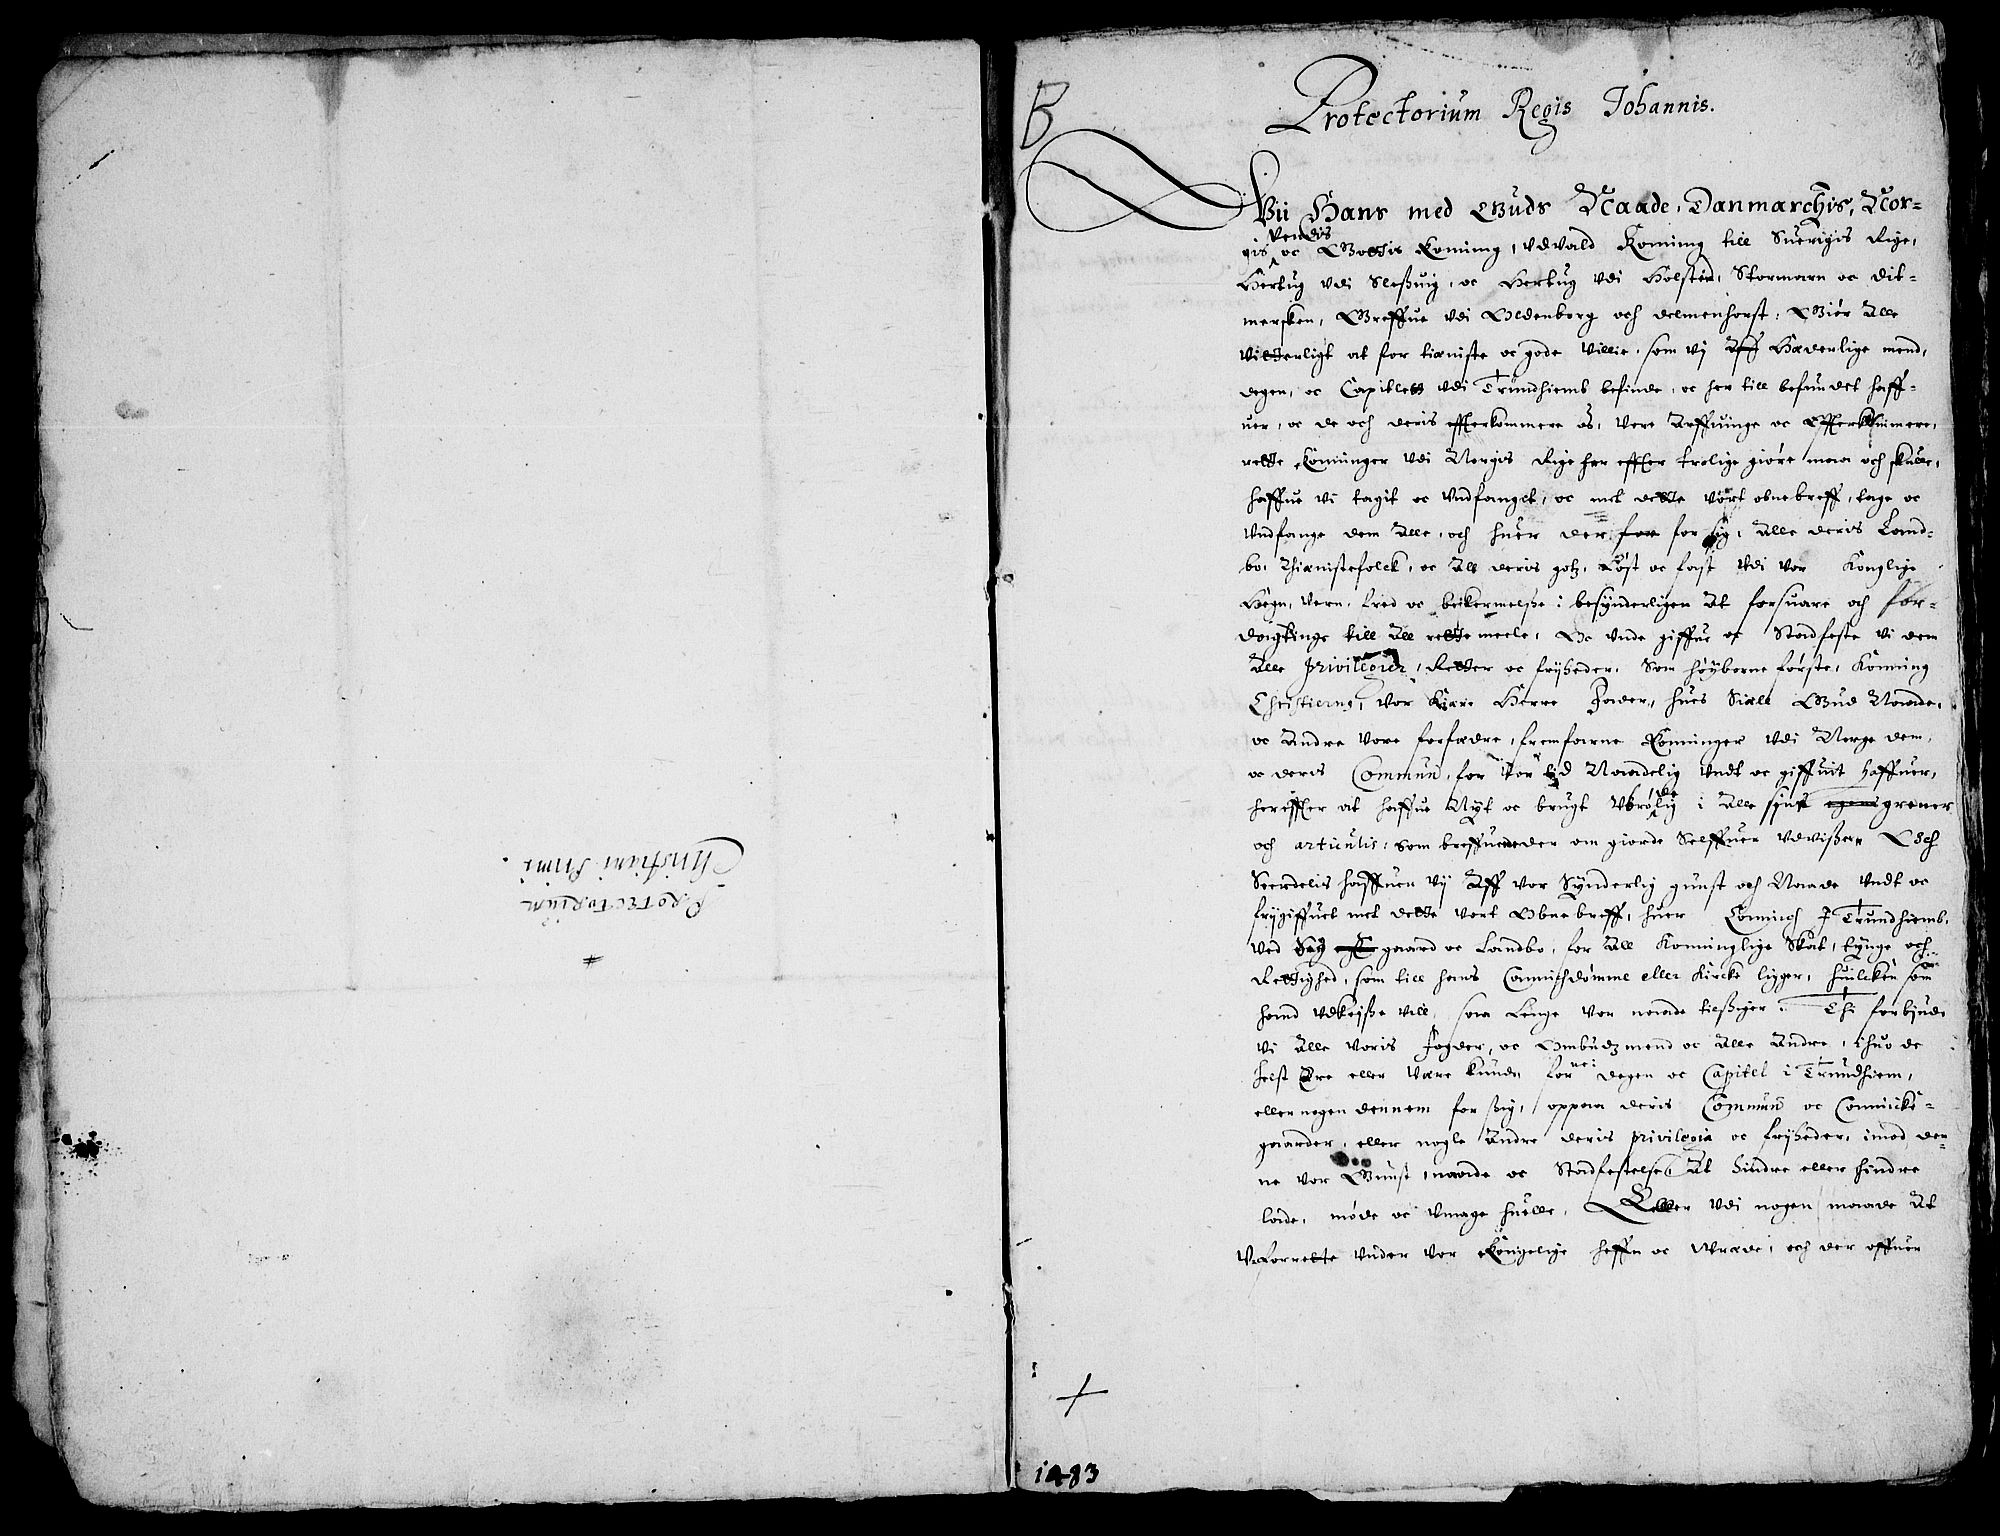 Protectorium
Christiani Primi
B
Protectorium Regis Johannis.
Wii Hans med Guds Naade, Danmarchis, Nor-
gis vendis oc Gottis Konning, vduald Konning till Suerigis Rige,
Hertug vdi Sleßuig, oc Hertug vdi Holsten, Stormarn oc Dit-
mersken, Greffue vdi Oldenborg och delmenhorst, Giör Alle
vitterligt at for tieniste oc gode villie, som vy Aff Hæderlige mend,
degen, oc Capitlett vdi Trundhiemb befinde, oc her till befundet haff-
uer, oc de och deris effterkommere os, vore Arffuinge oc Effterkommere,
rette Konninger vdi Norgis Rige her effter trolige giöre maa och skulle,
haffue vi tagit oc vndfanget, oc met dette vort obne breff, tage oc
vndfange dem Alle, och huer der for sig, Alle deris Land-
bo, thienistefolck, oc All deris gotz, Löst oc fast vdi vor Konglige
Hegn, vern, fred oc beskermelße, besynderligen At forsuare och for-
dagtinge till All rette meele, Oc vnde giffue oc Stadfeste vi dem
Alle privilegier, Retter oc fryheder, Som höyborne förste, Konning
Christierns, vor Kiære Herre Fader, hues Siæll Gud Naade,
oc Andre vore forfædre, fremfarne Konninger vdi Norge dem,
oc deris Commun, for vor tid Naadelig vndt oc giffuit haffuer,
hereffter at haffue Nyt oc brugt vbrödelig i Alle syne grener
och articulis, som breffuene der om giorde Selffuer vdvißer Och
Seerdelis haffuen vy Aff vor Synderlig gunst och Naade vndt oc
frygiffuet met dette vort Obne breff, huer Connich I Trundhiemb,
ved gaard oc Landbo, for All Konninglige Skat, tynge och
Rettighed, som till hans Cannichdömme eller Kircke ligger, huilcken som
hand vdkeyße vill, saa Lenge vor naade tilßiger. Thi forbiude
vi Alle voris Fogder, oc Ombudzmend oc Alle Andre, ihuo de
helst Ere eller være kunde for:ne degen oc Capitel i Trundhiem,
eller nogen dennem for ßig, oppaa deris Commun oc Cannicke-
gaarder, eller nogle Andre deris privilegia oc fryheder, imod den-
ne vor Gunst, naade oc Stadfestelse At hindre eller hindre
lade, möde oc vmage huelle, Eller vdi nogen maade At
vforrette vnder vor Kongelige heffn oc Vræde, och der offuer
1483